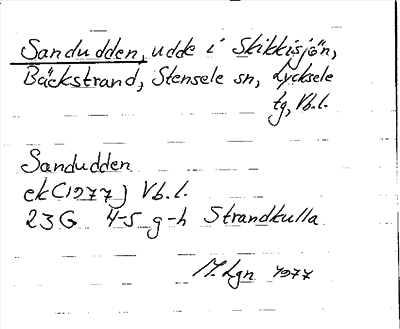 Sandudden, udde i Skikkisjön,
Bäckstrand, Stensele sn, Lycksele
tg, Vb.l.
Sandudden
ek (1977) Vb.l.
23G 4-5 g-h Strandkulla
M. Lgn 1977